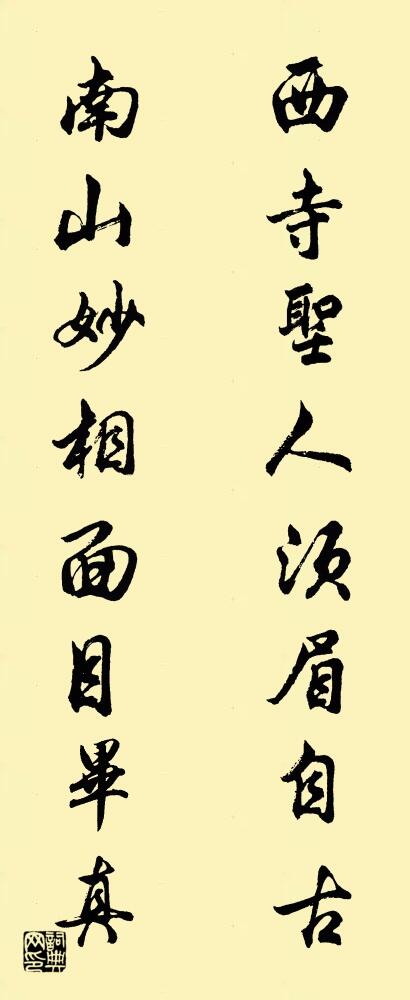 西寺聖人須眉自古
南山妙相面目畢真
詞典網印